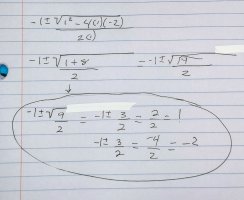 -1±√1²-4(1)(-2)
2(1)
-1±√1+8
2
= -1±√9
2
↓
-1±√9
2
= -1±3
2
= 2
2
= 1
-1±3
2
= -4
2
= -2